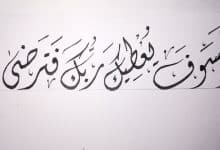 سوف يعطيك ربك فترضى